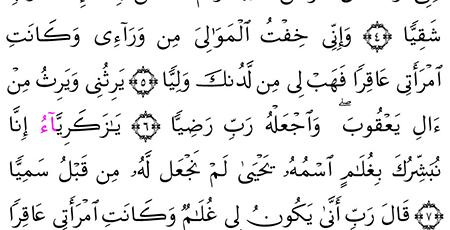 شَقِيًّا ﴿٤﴾ وَإِنِّى خِفْتُ ٱلْمَوَٰلِىَ مِن وَرَآءِى وَكَانَتِ
ٱمْرَأَتِى عَاقِرًا فَهَبْ لِى مِن لَّدُنكَ وَلِيًّا ﴿٥﴾ يَرِثُنِى وَيَرِثُ مِنْ
ءَالِ يَعْقُوبَ ۖ وَٱجْعَلْهُ رَبِّ رَضِيًّا ﴿٦﴾ يَٰزَكَرِيَّآءُ إِنَّا
نُبَشِّرُكَ بِغُلَٰمٍ ٱسْمُهُۥ يَحْيَىٰ لَمْ نَجْعَل لَّهُۥ مِن قَبْلُ سَمِيًّا
﴿٧﴾ قَالَ رَبِّ أَنَّىٰ يَكُونُ لِى غُلَٰمٌ وَكَانَتِ ٱمْرَأَتِى عَاقِرًا